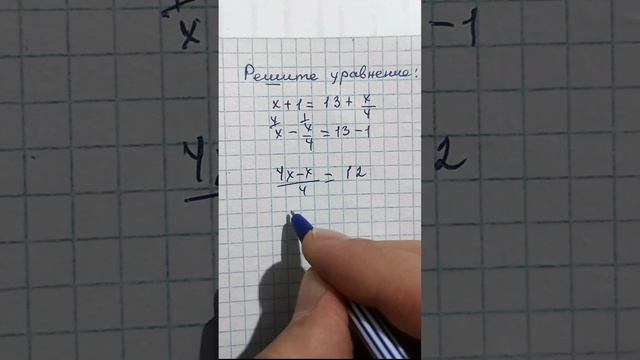 Решите уравнение:
x + 1 = 13 + x/4
4 1
x - x/4 = 13 - 1
4x - x/4 = 12